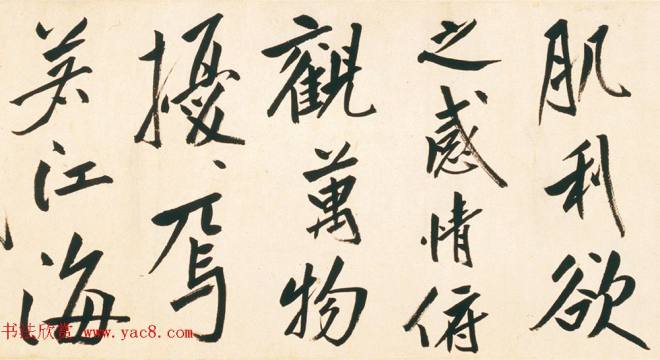 肌利欲
之感情俯
觀萬物
擾〻焉
江海
书法欣赏 www.yac8.com